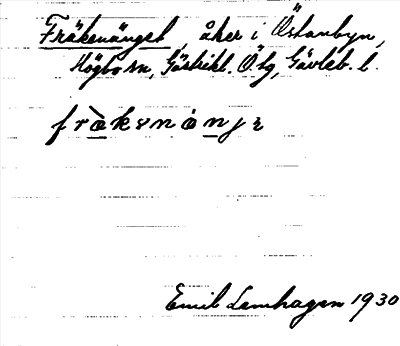 Fräkenänget, åker i Östanbyn,
Högbo sn, Gästrikl. Ö tg, Gävleb. l.
Emil Lamhagen 1930